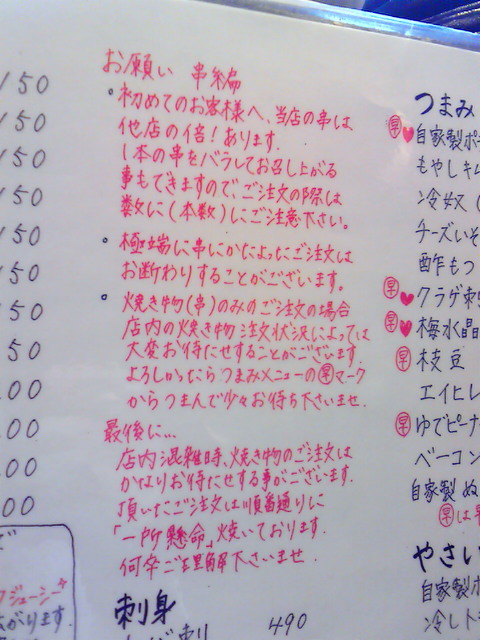 お願い 串編
・初めてのお客様へ、当店の串は
他店の倍!あります.
1本の串をバラしてお召し上がる
事もできますので、ご注文の際は
数に(本数)にご注意下さい。
・極端に串にかたよったご注文は
お断わりすることがございます。
・焼き物(串)のみのご注文の場合
店内の焼き物注文状況によっては
大変お待たせすることがございます.
よろしかったらつまみメニューの早マーク
からつまんで少々お待ち下さいませ.
最後に...
店内混雑時、焼き物のご注文は
かなりお待たせする事がございます.
頂いたご注文は順番通りに
「一所懸命」焼いております.
何卒ご理解下さいませ.
刺身
490
150
150
150
150
150
150
150
50
00
00
00
00
ジューシー
がります.
つまみ
早♥自家製ポ
もやしキム
冷奴(
チーズいそ
酢もつ
早♥クラゲ刺
早♥梅水晶
早 枝豆
エイヒレ
早ゆでピーナ
ベーコン
自家製ぬ
早は早
やさい
自家製
冷しト